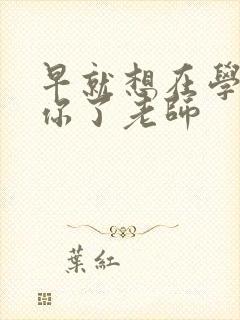 早就想在學
你了老師
葉紅